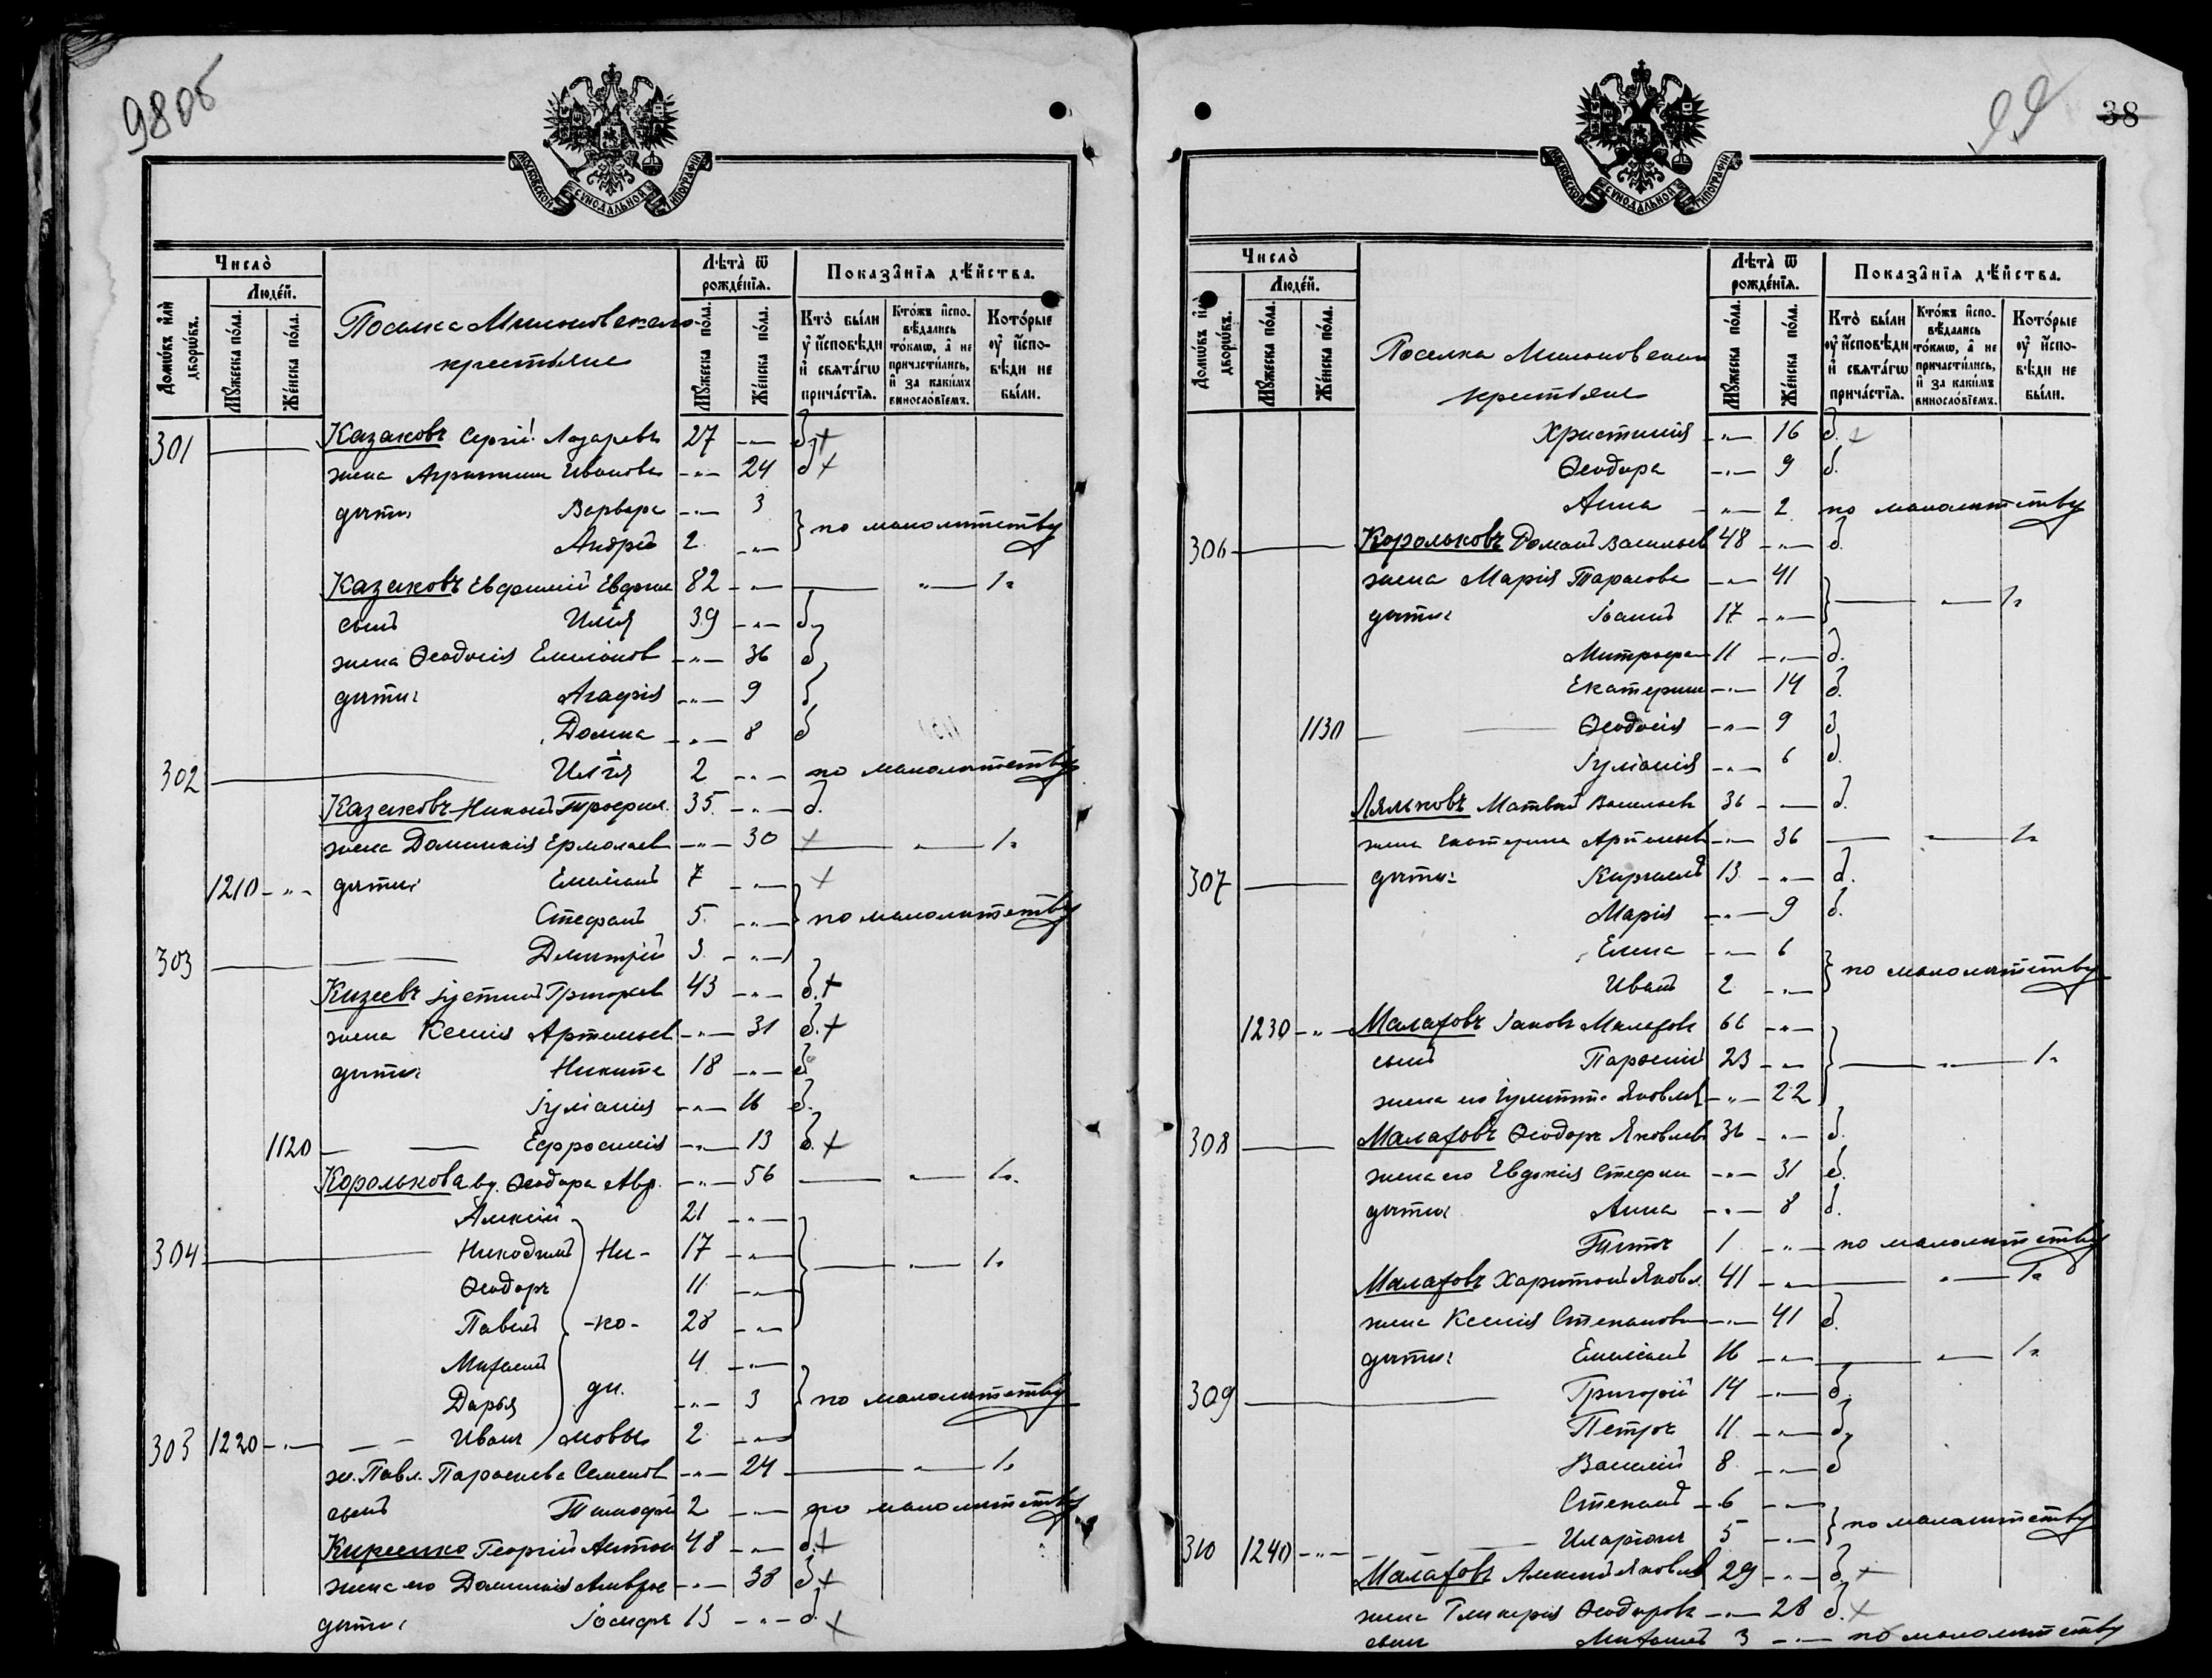 98об
МОСКОВСКОЙ СѴНОДАЛЬНОЙ ТИПОГРАФІИ
Число̀
Людéй.
Домѡ́въ и҆лѝ дворѡ́въ.
Мꙋ́жеска по́ла.
Же́нска по́ла.
Поселка Мильковскаго
крестьяне
Лѣта̀ ѿ рожде́нїѧ.
Мꙋ́жеска по́ла.
Же́нска по́ла.
Показа̑нїѧ дѣ́йства.
Кто̀ бы́ли ᲂу҆ и҆сповѣ́ди и҆ свѧта́гѡ прича́стїѧ.
Кто́жъ и҆спо-вѣ́дались то́кмѡ, а҆ не причасти́лись, и҆ за каки́мъ винословїемъ.
Кото́рые ᲂу҆ и҆спо-вѣ́ди не бы́ли.
301 Казаковъ Сергій Лазаревъ 27 -"- б. +
жена Агриппина Иванова -"- 24 б +
дѣти: Варвара -"- 3
Андрей 2 -"- } по малолѣтству
Казаковъ Евфимій Евфим 82 -"- — " — 1.
сынъ Илія 39 -"- б.
жена Ѳеодосія Емеліанов -"- 36 б
дѣти: Агафія -"- 9 б
Домна -"- 8 б
302 Илія 2 -"- по малолѣтству
Казаковъ Трофим. 35 -"- б.
жена Домникія Ермолаев -"- 30 + — " — 1.
1210 -"- дѣти: Емеліанъ 7 -"- +
Стефанъ 5 -"- } по малолѣтству
303 Димитрій 3 -"-
Кизеевъ Іустинъ Григорьев 43 -"- б. +
жена Ксенія Артемьев -"- 31 б. +
дѣти: Никита 18 -"- б
Іуліанія -"- 16 б.
1120 Ефросинія -"- 13 б. +
Королькова вд. Ѳеодора Авр. -"- 56 — " — 1.
Алексій 21 -"-
304 Никодимъ Ни- 17 -"- } — " — 1.
Ѳеодоръ 11 -"-
Павелъ -ко- 28 -"-
Михаилъ 4 -"-
Дарья ди. -"- 3 } по малолѣтству
303 1220 -"- Иванъ мовы 2 -"-
ж. Павл. Параскева Семенов -"- 24 — " — 1.
сынъ Тимофей 2 -"- по малолѣтству
Киреенко Георгій Антон 48 -"- б. +
жена его Домникія Амврос -"- 38 б +
дѣти: Іосифъ 13 -"- б. +
99
38
МОСКОВСКОЙ СѴНОДАЛЬНОЙ ТИПОГРАФІИ
Число̀
Людéй.
Домѡ́въ и҆лѝ дворѡ́въ.
Мꙋ́жеска по́ла.
Же́нска по́ла.
Поселка Мильковскаго
крестьяне
Лѣта̀ ѿ рожде́нїѧ.
Мꙋ́жеска по́ла.
Же́нска по́ла.
Показа̑нїѧ дѣ́йства.
Кто̀ бы́ли ᲂу҆ и҆сповѣ́ди и҆ свѧта́гѡ прича́стїѧ.
Кто́жъ и҆спо-вѣ́дались то́кмѡ, а҆ не причасти́лись, и҆ за каки́мъ винословїемъ.
Кото́рые ᲂу҆ и҆спо-вѣ́ди не бы́ли.
Христинія -"- 16 б. +
Ѳеодора -"- 9 б.
Анна -"- 2 по малолѣтству
306 Корольковъ Романъ Васильев 48 -"- б.
жена Марія Тарасова -"- 41
дѣти: Іоаннъ 17 -"- } — " — 1.
Митрофан 11 -"- б.
Екатерина -"- 14 б.
1130 Ѳеодосія -"- 9 б
Іуліанія -"- 6 б.
Ляльковъ Матвей Васильев 36 -"- б.
жена Екатерина Артемьев -"- 36 — " — 1.
307 дѣти: Кириллъ 13 -"- б.
Марія -"- 9 б.
Елена -"- 6
Иванъ 2 -"- } по малолѣтству
1230 -"- Малаховъ Іаковъ Малахов 66 -"-
сынъ Парѳеній 23 -"- } — " — 1.
жена его Іулитта Яковлев -"- 22
308 Малаховъ Ѳеодоръ Яковлев 36 -"- б.
жена его Евдокія Стефан -"- 31 б.
дѣти: Анна -"- 8 б.
Титъ 1 -"- по малолѣтству
Малаховъ Харитонъ Яковл. 41 -"- — " — 1.
жена Ксенія Степанова -"- 41 б.
дѣти: Емеліанъ 16 -"- — " — 1.
309 Григорій 14 -"- б.
Петръ 11 -"- б.
Василій 8 -"- б
Степанъ 6 -"-
310 1240 -"- Иларіонъ 5 -"- } по малолѣтству
Малаховъ Алексій Яковлев 29 -"- б. +
жена Гликерія Ѳеодоров -"- 28 б. +
сынъ Михаилъ 3 -"- по малолѣтству